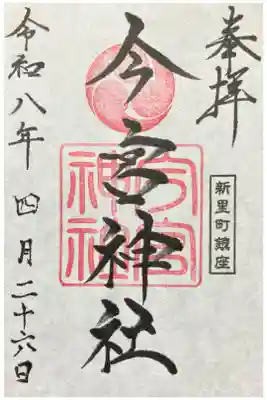 奉拝
新里町鎮座
今宮神社
今宮神社
令和八年 四月二十六日